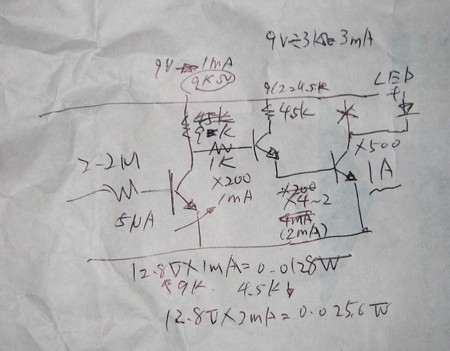 9V÷3K=3mA
9V→1mA
9K5V
9/2=4.5K
LED
+
45K
9K
45K
1K
2-2M
5μA
X200
1mA
X200
X4~2
4mA
(2mA)
X500
1A
12.8V×1mA=0.0128W
9K. 4.5K
12.8V×2mA=0.0256W